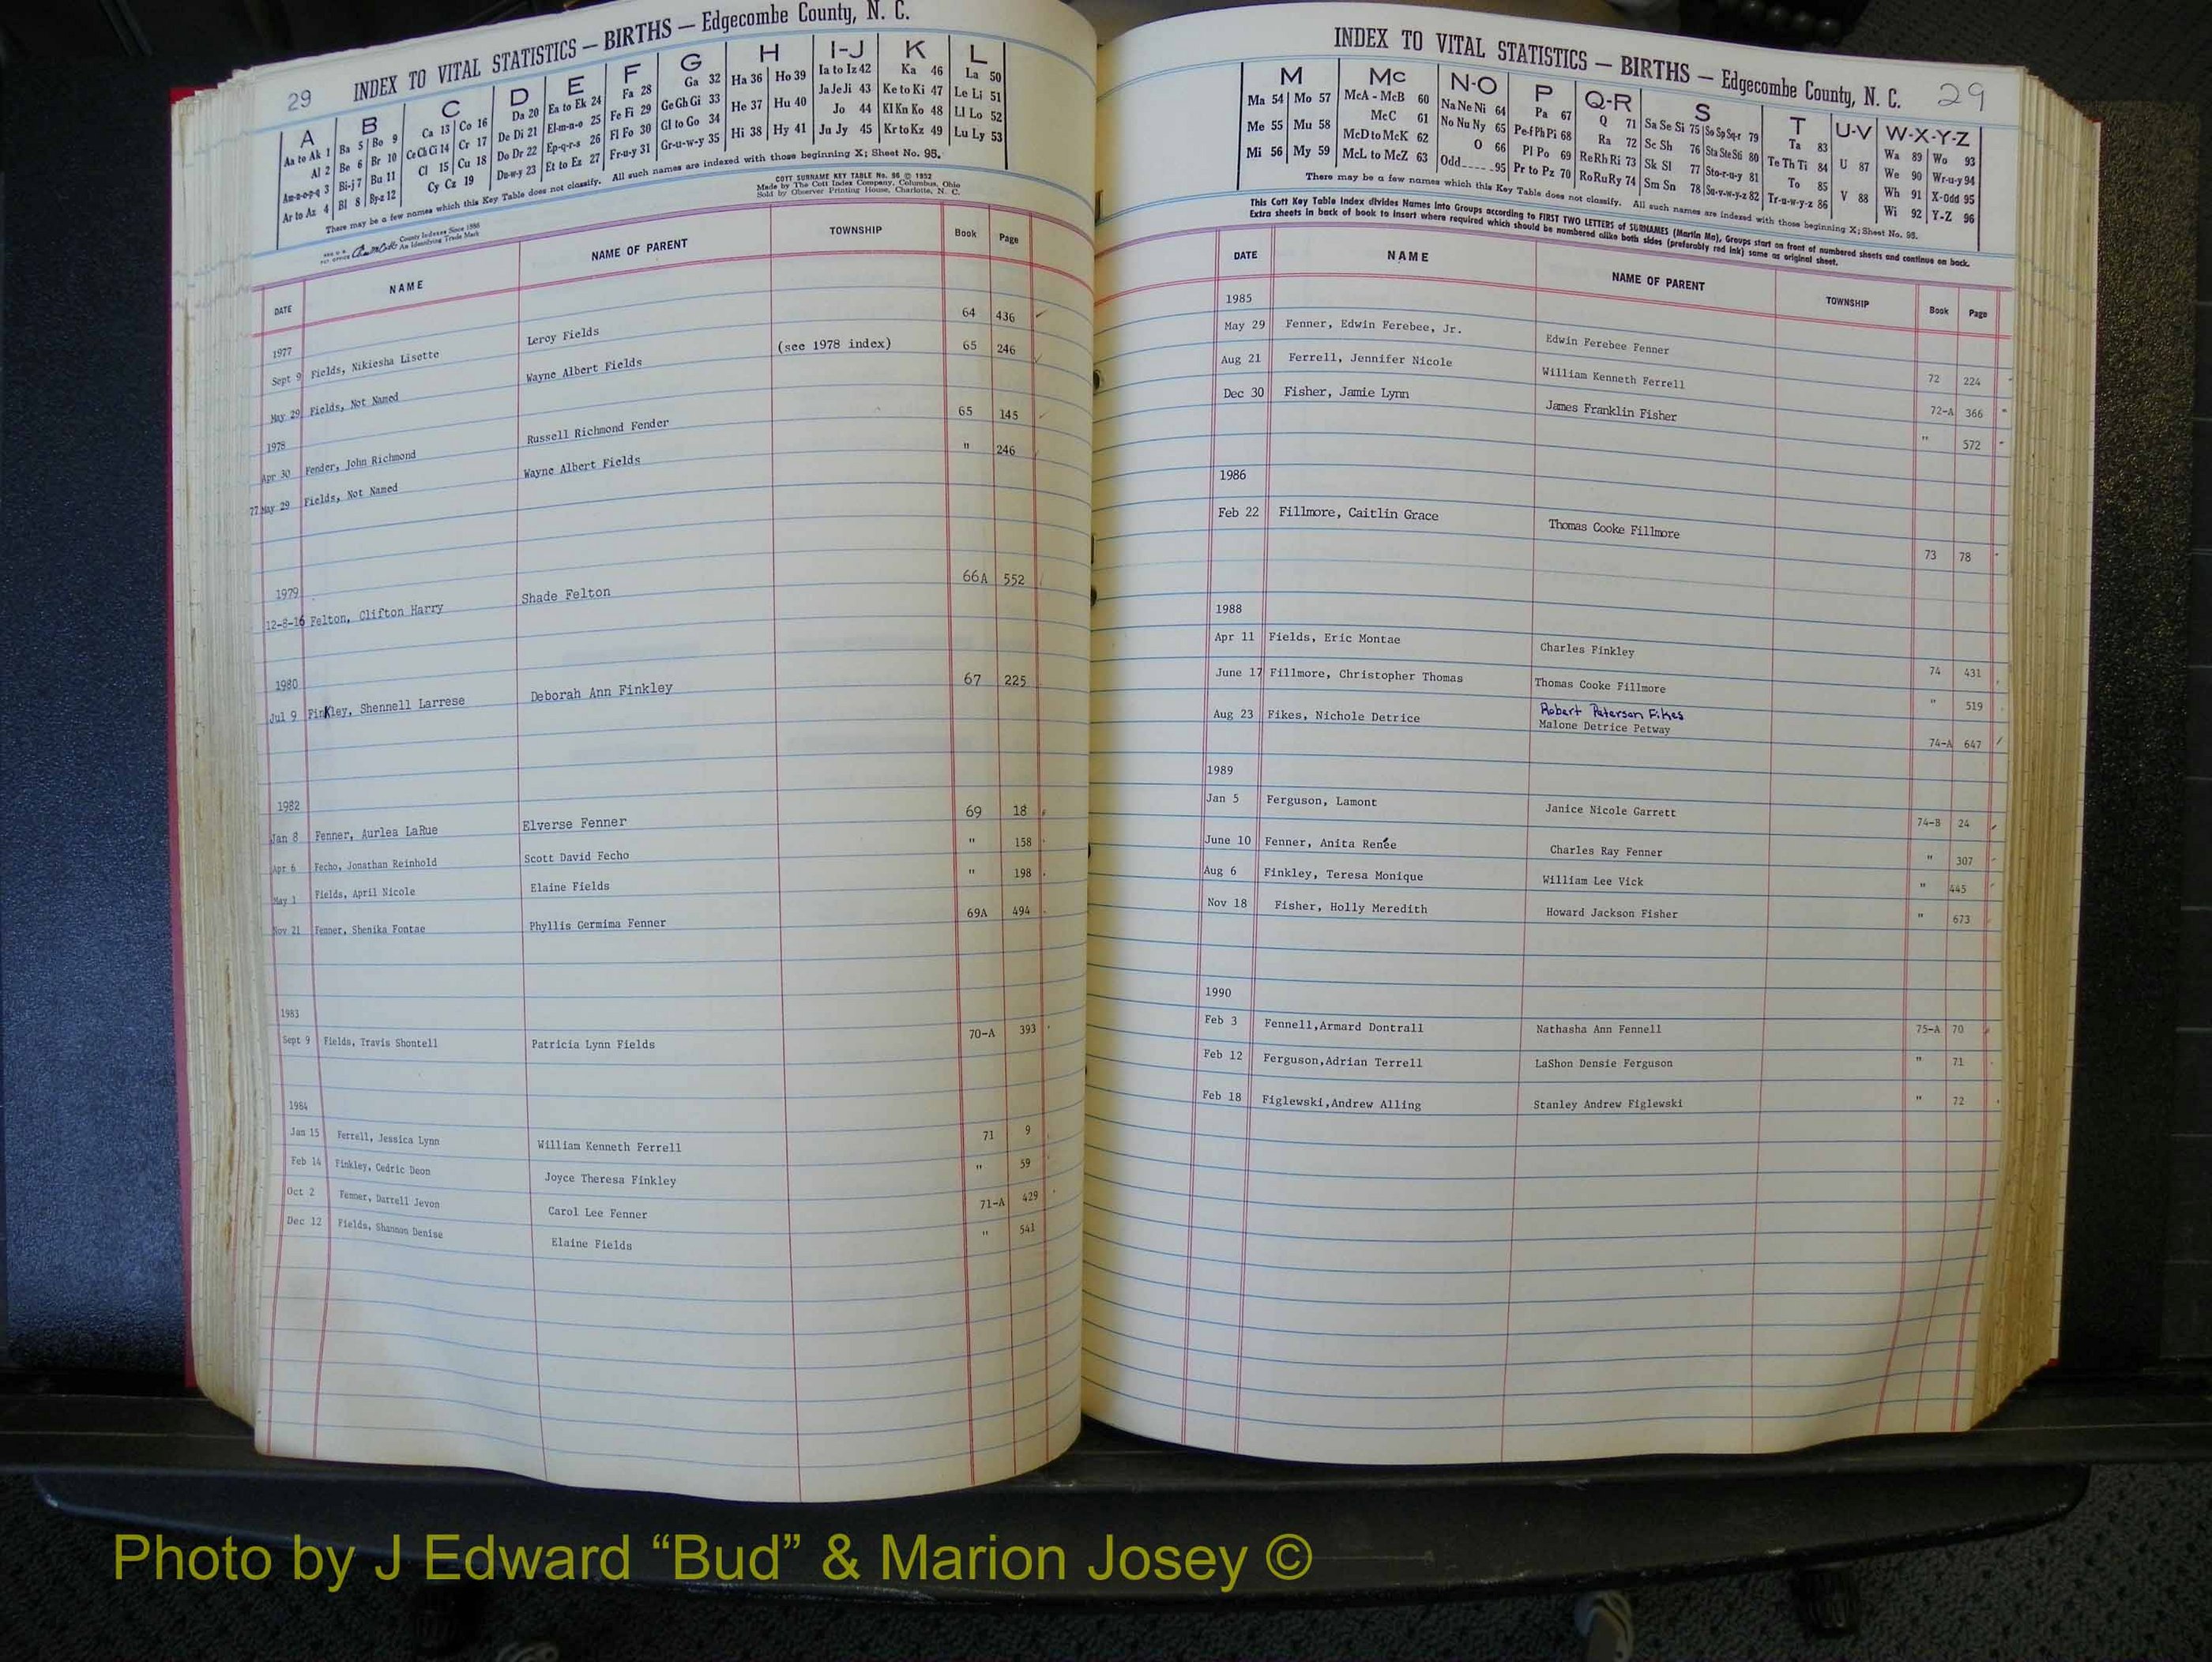 29 INDEX TO VITAL STATISTICS — BIRTHS — Edgecombe County, N. C.
A B C D E F G H I-J K L
Aa to Ak 1 Ba 5 Bo 9 Ca 13 Co 16 Da 20 Ea to Ek 24 Fa 28 Ga 32 Ha 36 Ho 39 Ia to Iz 42 Ka 46 La 50
Al 2 Be 6 Br 10 Ce Ch Ci 14 Cr 17 De Di 21 El-m-n-o 25 Fe Fi 29 Ge Gh Gi 33 He 37 Hu 40 Ja Je Ji 43 Ke to Ki 47 Le Li 51
Am-n-o-p-q 3 Bi-j 7 Bu 11 Cl 15 Cu 18 Do Dr 22 Ep-q-r-s 26 Fl Fo 30 Gl to Go 34 Hi 38 Hy 41 Jo 44 Kl Kn Ko 48 Ll Lo 52
Ar to Az 4 Bl 8 By-z 12 Cy Cz 19 Du-w-y 23 Et to Ez 27 Fr-u-y 31 Gr-u-w-y 35 Ju Jy 45 Kr to Kz 49 Lu Ly 53
There may be a few names which this Key Table does not classify. All such names are indexed with those beginning X; Sheet No. 95.
COTT SURNAME KEY TABLE No. 96 © 1952
Made by The Cott Index Company, Columbus, Ohio
Sold by Observer Printing House, Charlotte, N. C.
County Indexes Since 1888
An Identifying Trade Mark
DATE NAME NAME OF PARENT TOWNSHIP Book Page
1977
Sept 9 Fields, Nikiesha Lisette Leroy Fields 64 436
May 29 Fields, Not Named Wayne Albert Fields (see 1978 index) 65 246
1978
Apr 30 Fender, John Richmond Russell Richmond Fender 65 145
77 May 29 Fields, Not Named Wayne Albert Fields " 246
1979
12-8-16 Felton, Clifton Harry Shade Felton 66A 552
1980
Jul 9 Finkley, Shennell Larrese Deborah Ann Finkley 67 225
1982
Jan 8 Fenner, Aurlea LaRue Elverse Fenner 69 18
Apr 6 Fecho, Jonathan Reinhold Scott David Fecho " 158
May 1 Fields, April Nicole Elaine Fields " 198
Nov 21 Fenner, Shenika Fontae Phyllis Germima Fenner 69A 494
1983
Sept 9 Fields, Travis Shontell Patricia Lynn Fields 70-A 393
1984
Jan 15 Ferrell, Jessica Lynn William Kenneth Ferrell 71 9
Feb 14 Finkley, Cedric Deon Joyce Theresa Finkley " 59
Oct 2 Fenner, Darrell Jevon Carol Lee Fenner 71-A 429
Dec 12 Fields, Shannon Denise Elaine Fields " 541
INDEX TO VITAL STATISTICS — BIRTHS — Edgecombe County, N. C. 29
M Mc N-O P Q-R S T U-V W-X-Y-Z
Ma 54 Mo 57 McA - McB 60 Na Ne Ni 64 Pa 67 Q 71 Sa Se Si 75 So Sp Sq-r 79 Ta 83 U 87 Wa 89 Wo 93
Me 55 Mu 58 McC 61 No Nu Ny 65 Pe-f Ph Pi 68 Ra 72 Sc Sh 76 Sta Ste Sti 80 Te Th Ti 84 V 88 We 90 Wr-u-y 94
Mi 56 My 59 McD to McK 62 O 66 Pl Po 69 Re Rh Ri 73 Sk Sl 77 Sto-r-u-y 81 To 85 Wh 91 X-Odd 95
McL to McZ 63 Odd 95 Pr to Pz 70 Ro Ru Ry 74 Sm Sn 78 Su-v-w-y-z 82 Tr-u-w-y-z 86 Wi 92 Y-Z 96
There may be a few names which this Key Table does not classify. All such names are indexed with those beginning X; Sheet No. 95.
This Cott Key Table Index divides Names into Groups according to FIRST TWO LETTERS of SURNAMES (Martin Ma), Groups start on front of numbered sheets and continue on back.
Extra sheets in back of book to insert where required which should be numbered alike both sides (preferably red ink) same as original sheet.
DATE NAME NAME OF PARENT TOWNSHIP Book Page
1985
May 29 Fenner, Edwin Ferebee, Jr. Edwin Ferebee Fenner 72 224
Aug 21 Ferrell, Jennifer Nicole William Kenneth Ferrell 72-A 366
Dec 30 Fisher, Jamie Lynn James Franklin Fisher " 572
1986
Feb 22 Fillmore, Caitlin Grace Thomas Cooke Fillmore 73 78
1988
Apr 11 Fields, Eric Montae Charles Finkley 74 431
June 17 Fillmore, Christopher Thomas Thomas Cooke Fillmore " 519
Aug 23 Fikes, Nichole Detrice Robert Peterson Fikes
Malone Detrice Petway 74-A 647
1989
Jan 5 Ferguson, Lamont Janice Nicole Garrett 74-B 24
June 10 Fenner, Anita Renée Charles Ray Fenner " 307
Aug 6 Finkley, Teresa Monique William Lee Vick " 445
Nov 18 Fisher, Holly Meredith Howard Jackson Fisher " 673
1990
Feb 3 Fennell,Armard Dontrall Nathasha Ann Fennell 75-A 70
Feb 12 Ferguson,Adrian Terrell LaShon Densie Ferguson " 71
Feb 18 Figlewski,Andrew Alling Stanley Andrew Figlewski " 72
Photo by J Edward “Bud” & Marion Josey ©